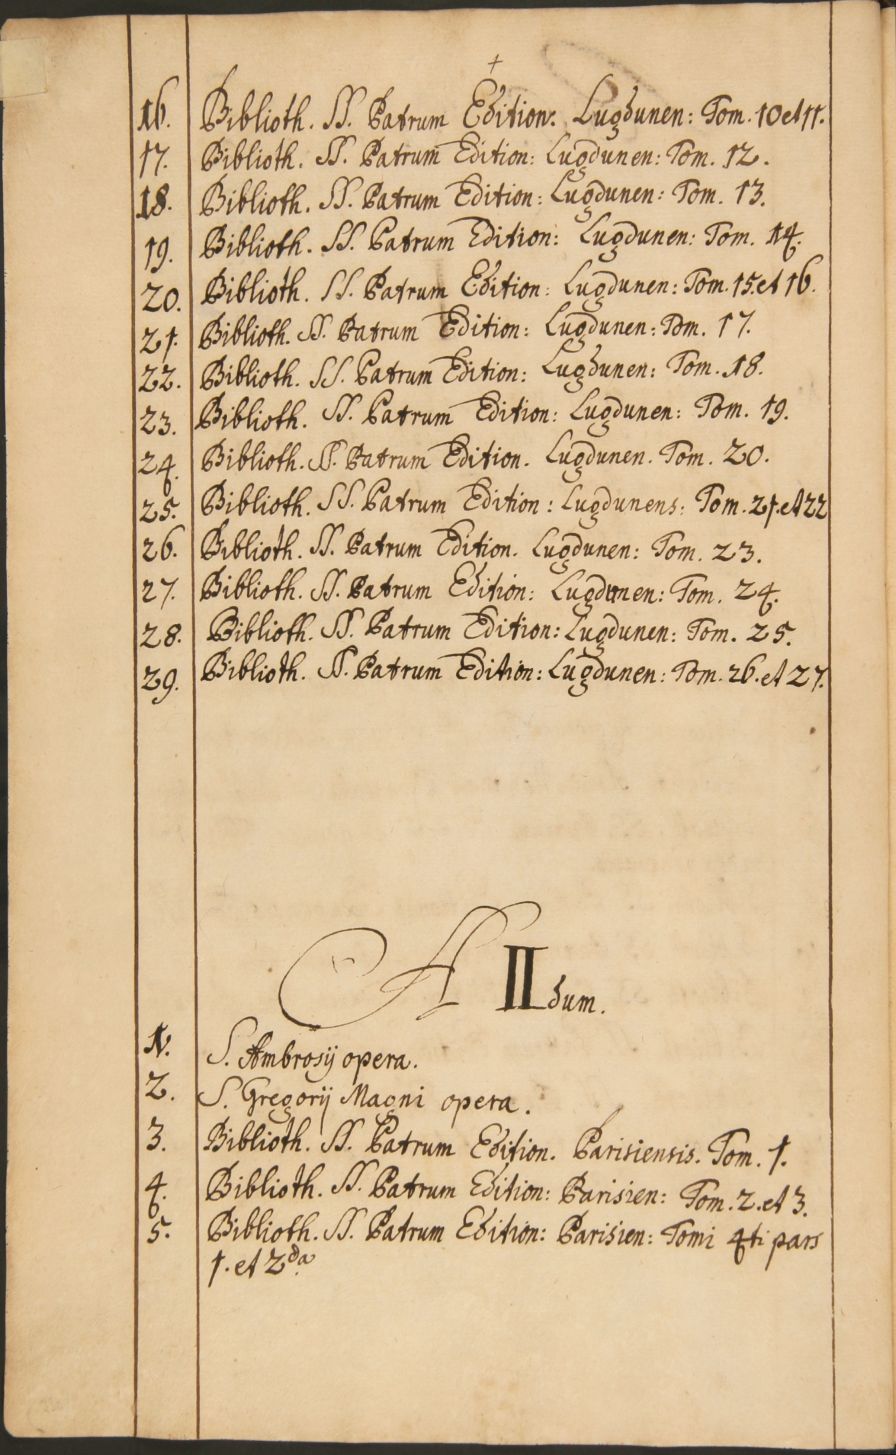 +
16. Biblioth. SS. Patrum Edition: Lugdunen: Tom. 10 et 11.
17. Biblioth. SS. Patrum Edition: Lugdunen: Tom. 12.
18. Biblioth. SS. Patrum Edition: Lugdunen: Tom. 13.
19. Biblioth. SS. Patrum Edition: Lugdunen: Tom. 14.
20. Biblioth. SS. Patrum Edition: Lugdunen: Tom. 15. et 16.
21. Biblioth. SS. Patrum Edition: Lugdunen: Tom. 17.
22. Biblioth. SS. Patrum Edition: Lugdunen: Tom. 18.
23. Biblioth. SS. Patrum Edition: Lugdunen: Tom. 19.
24. Biblioth. SS. Patrum Edition. Lugdunen. Tom. 20.
25. Biblioth. SS. Patrum Edition: Lugdunens: Tom. 21. et 22
26. Biblioth. SS. Patrum Edition. Lugdunen: Tom. 23.
27. Biblioth. SS. Patrum Edition: Lugdunen: Tom. 24.
28. Biblioth. SS. Patrum Edition: Lugdunen: Tom. 25.
29. Biblioth. SS. Patrum Edition: Lugdunen: Tom. 26. et 27.
A IIdum.
1. S. Ambrosij opera.
2. S. Gregorij Magni opera.
3. Biblioth. SS. Patrum Edition. Parisiensis. Tom. 1.
4. Biblioth. SS. Patrum Edition: Parisien: Tom. 2. et 3.
5. Biblioth. SS. Patrum Edition: Parisien: Tomi 4ti pars
1. et 2da